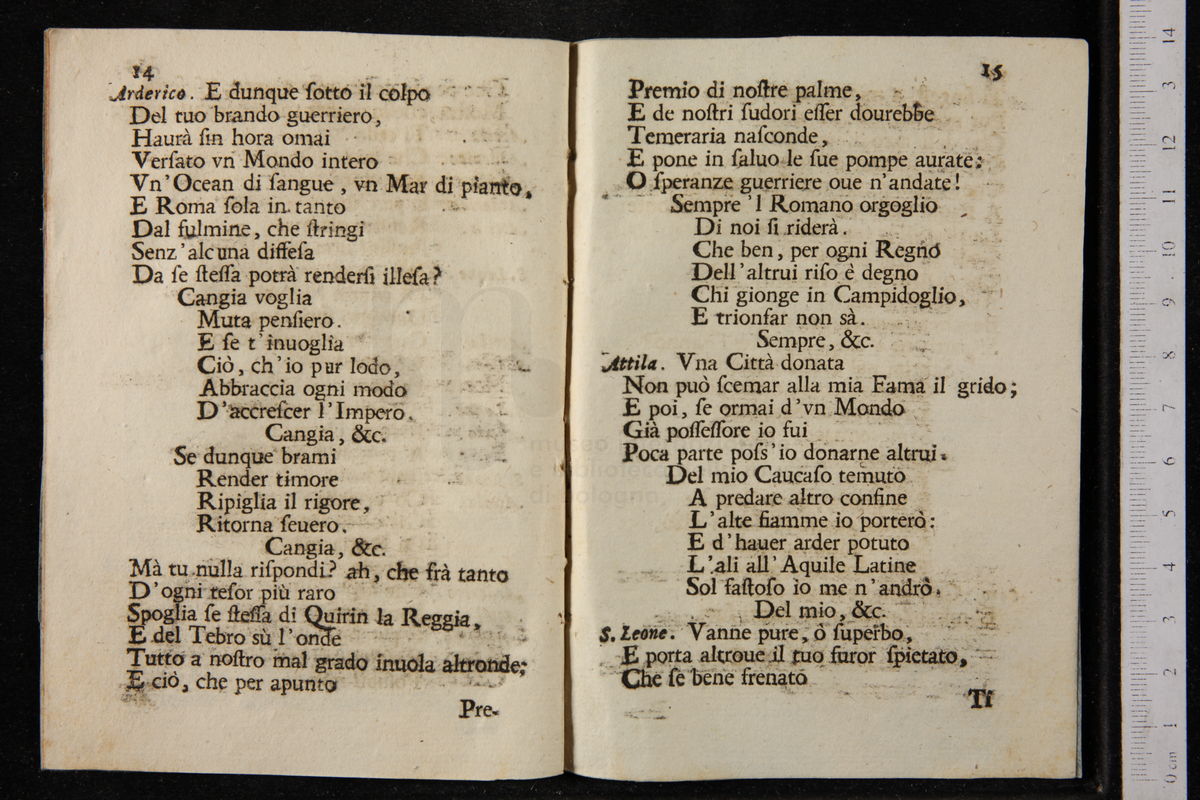 14
Arderico. E dunque ſotto il colpo
Del tuo brando guerriero,
Haurà ſin hora omai
Verſato vn Mondo intero
Vn'Ocean di ſangue, vn Mar di pianto,
E Roma ſola in tanto
Dal fulmine, che ſtringi
Senz'alcuna diffeſa
Da ſe ſteſſa potrà renderſi illeſa?
Cangia voglia
Muta penſiero.
E ſe t'inuoglia
Ciò, ch'io pur lodo,
Abbraccia ogni modo
D'accreſcer l'Impero.
Cangia, &c.
Se dunque brami
Render timore
Ripiglia il rigore,
Ritorna ſeuero.
Cangia, &c.
Mà tu nulla riſpondi? ah, che frà tanto
D'ogni teſor più raro
Spoglia ſe ſteſſa di Quirin la Reggia,
E del Tebro sù l'onde
Tutto a noſtro mal grado inuola altronde;
E ciò, che per apunto
Pre-
15
Premio di noſtre palme,
E de noſtri ſudori eſſer dourebbe
Temeraria naſconde,
E pone in ſaluo le ſue pompe aurate:
O ſperanze guerriere oue n'andate!
Sempre 'l Romano orgoglio
Di noi ſi riderà.
Che ben, per ogni Regno
Dell'altrui riſo è degno
Chi gionge in Campidoglio,
E trionfar non sà.
Sempre, &c.
Attila. Vna Città donata
Non può ſcemar alla mia Fama il grido;
E poi, ſe ormai d'vn Mondo
Già poſſeſſore io fui
Poca parte poſs'io donarne altrui.
Del mio Caucaſo temuto
A predare altro confine
L'alte fiamme io porterò:
E d'hauer arder potuto
L'ali all'Aquile Latine
Sol faſtoſo io me n'andrò.
Del mio, &c.
S. Leone. Vanne pure, ò ſuperbo,
E porta altroue il tuo furor ſpietato,
Che ſe bene frenato
Ti
museo
e biblioteca
di bologna